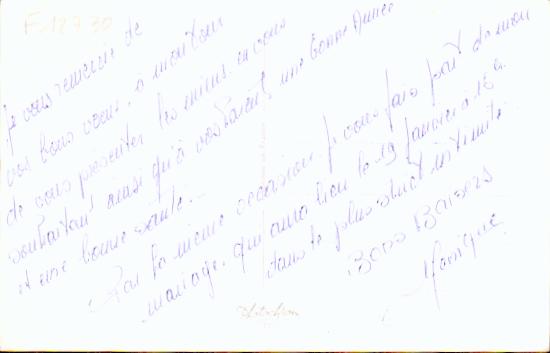 E 187 30
Je vous remercie de
vos bons voeux, à mon tour
de vous présenter les miens en vous
souhaitant ainsi qu'à vos parents une bonne Année
et une bonne santé.
Par la même occasion, je vous fais part de mon
mariage, qui aura lieu le 19 Janvier à 15 h.
dans la plus strict intimité.
Bons Baisers
Monique